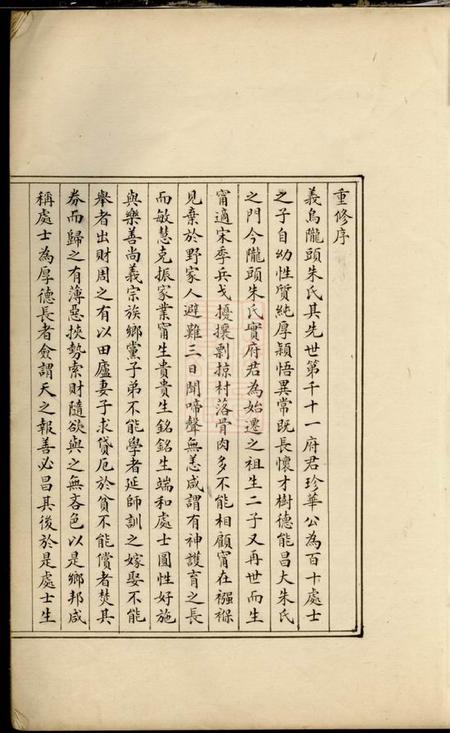 重修序
義烏隴頭朱氏其先世第千十一府君珍華公為百十處士
之子自幼性質純厚穎悟異常既長懷才樹德能昌大朱氏
之門今隴頭朱氏實府君為始遷之祖生二子又再世而生
甯適宋季兵戈擾攘剽掠村落骨肉多不能相顧甯在襁褓
見棄於野家人避難三日聞啼聲無恙咸謂有神護育之長
而敏慧克振家業甯生貴貴生銘銘生端和處士圓性好施
與樂善尚義宗族鄉黨子弟不能學者延師訓之嫁娶不能
舉者出財周之有以田廬妻子求貸厄於貧不能償者焚其
券而歸之有薄惡挾勢索財隨欲與之無吝色以是鄉邦咸
稱處士為厚德長者僉謂天之報善必昌其後於是處士生